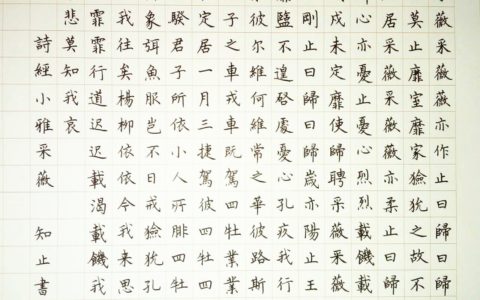 薇采薇薇亦作止曰歸曰歸
莫止靡室靡家獫狁之故不
居采薇采薇薇亦柔止曰歸
心亦憂止憂心烈烈載饑載
戍未定靡使歸聘采薇采薇
剛止曰歸曰歸歲亦陽止王
盬不遑啓處憂心孔疚我行
彼尔維何維常之華彼路斯
子之車戎車既駕四牡業業
定居一月三捷駕彼四牡四
騤君子所依小人所腓四牡
象弭魚服豈不日戒獫狁孔
我往矣楊柳依依今我来思
霏霏行道迟迟載渴載饑我
悲莫知我哀
詩經小雅采薇 知止書